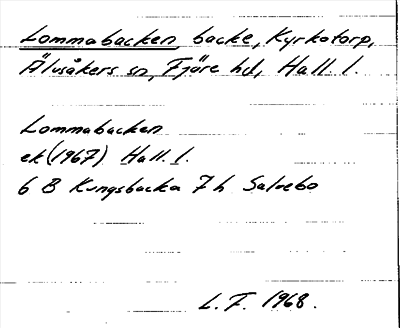 Lommabacken backe, Kyrkotorp,
Älvsåkers sn, Fjäre hd, Hall. l.
Lommabacken
ek (1967) Hall. l.
6 B Kungsbacka 7 h Salvebo
L. F. 1968.